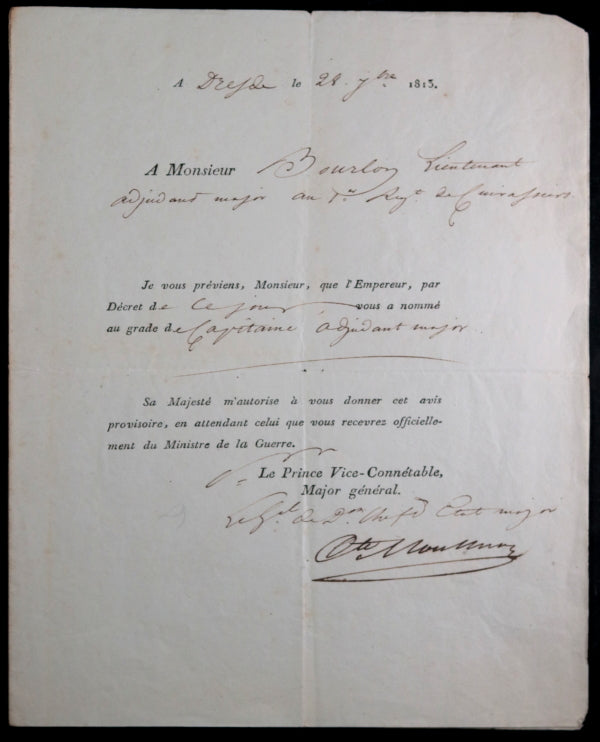 A Dresde le 28. 7bre 1813.
A Monsieur Bourlon Lieutenant
adjudant major au 7e Regt de Cuirassiers.
Je vous préviens, Monsieur, que l'Empereur, par
Décret de ce jour vous a nommé
au grade de Capitaine adjudant major.
Sa Majesté m'autorise à vous donner cet avis
provisoire, en attendant celui que vous recevrez officielle-
ment du Ministre de la Guerre.
Le Prince Vice-Connétable,
Major général.
Le Gal de Don chef d'Etat major
Cte